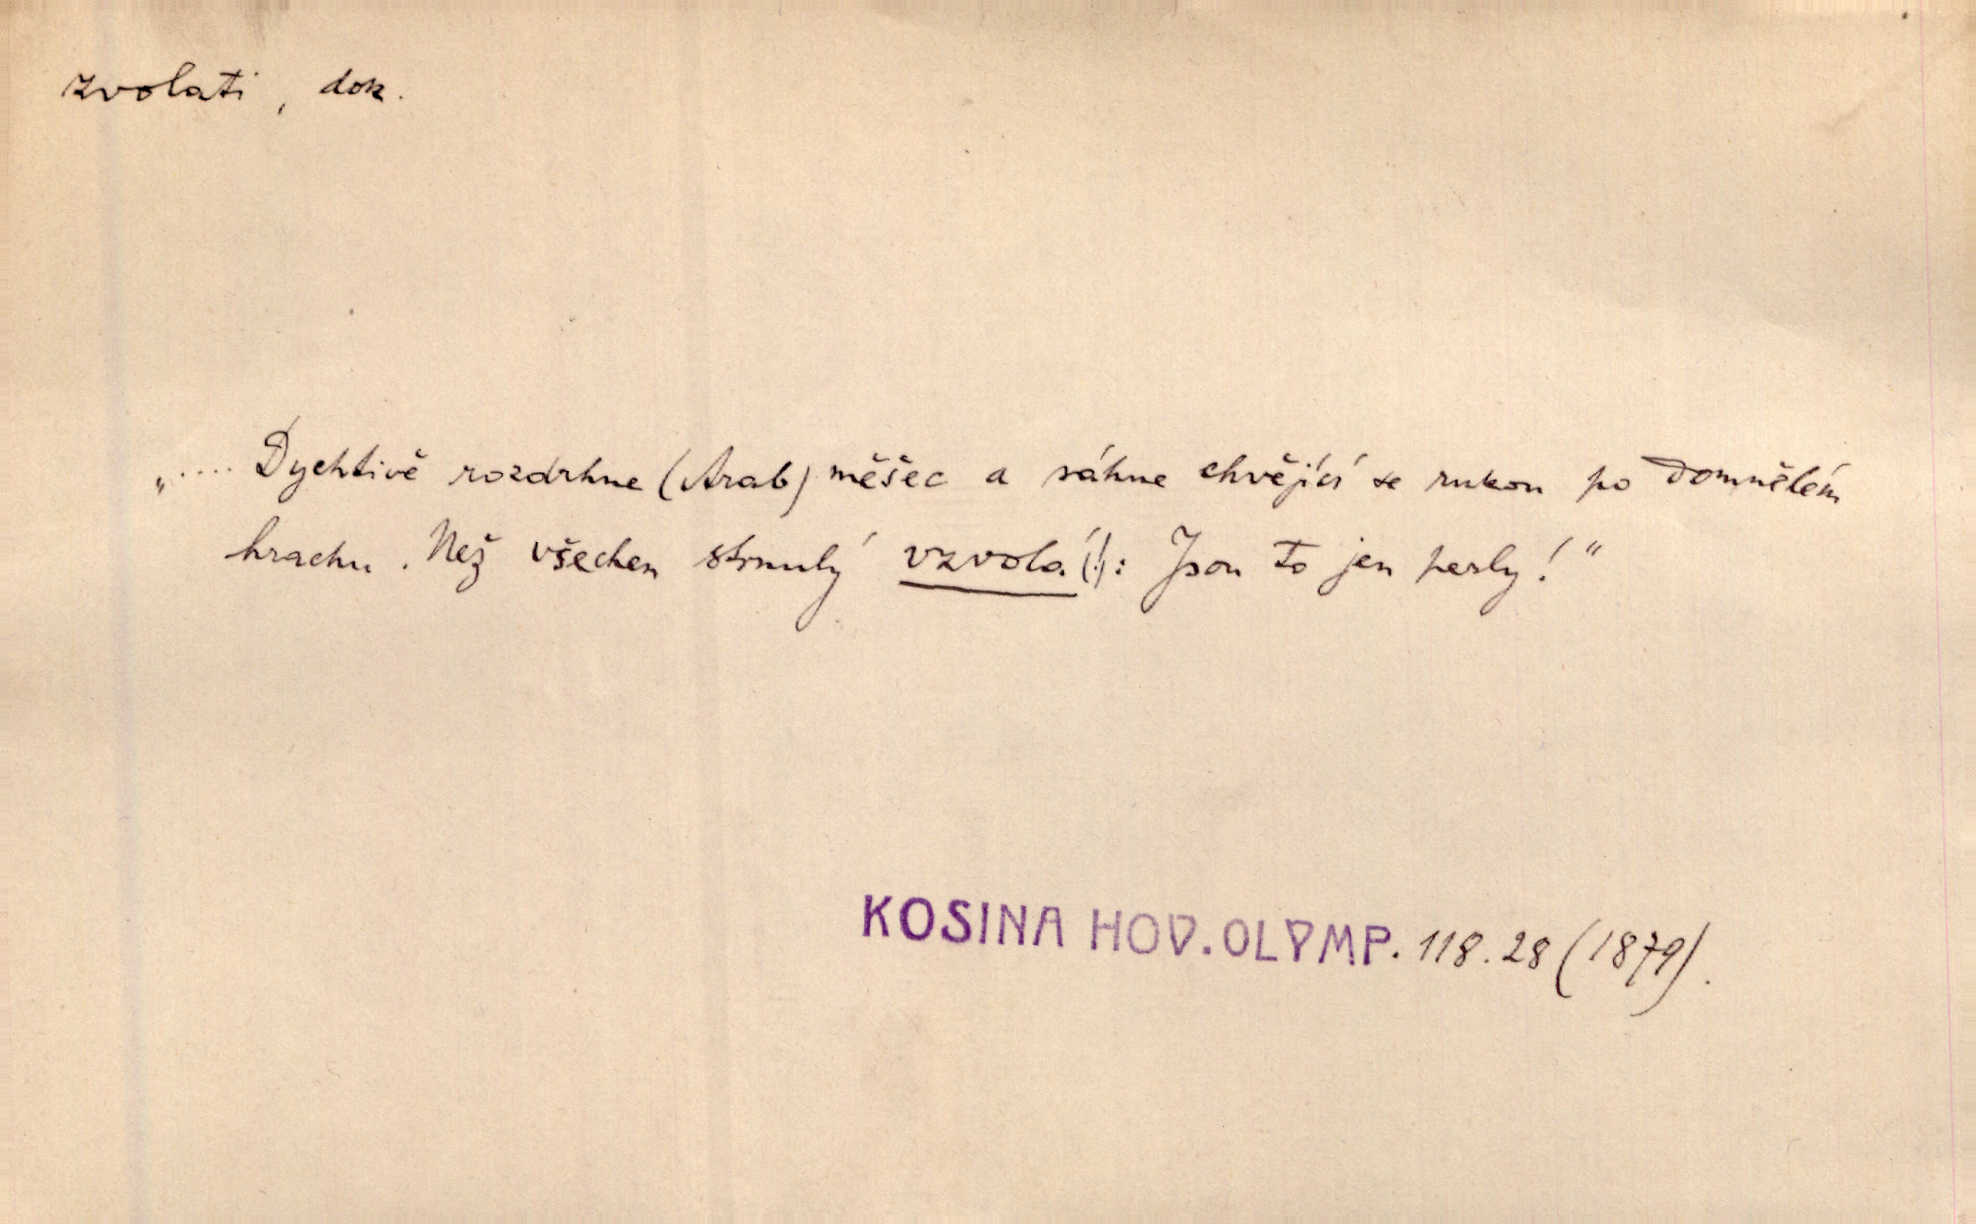 zvolati, dok.
„.... Dychtivě rozdrhne (Arab) měšec a sáhne chvějící se rukou po domnělém
hrachu. Než všechen strnulý vzvolá (!): Jsou to jen perly!“
KOSINA HOV. OLYMP. 118.28 (1879).